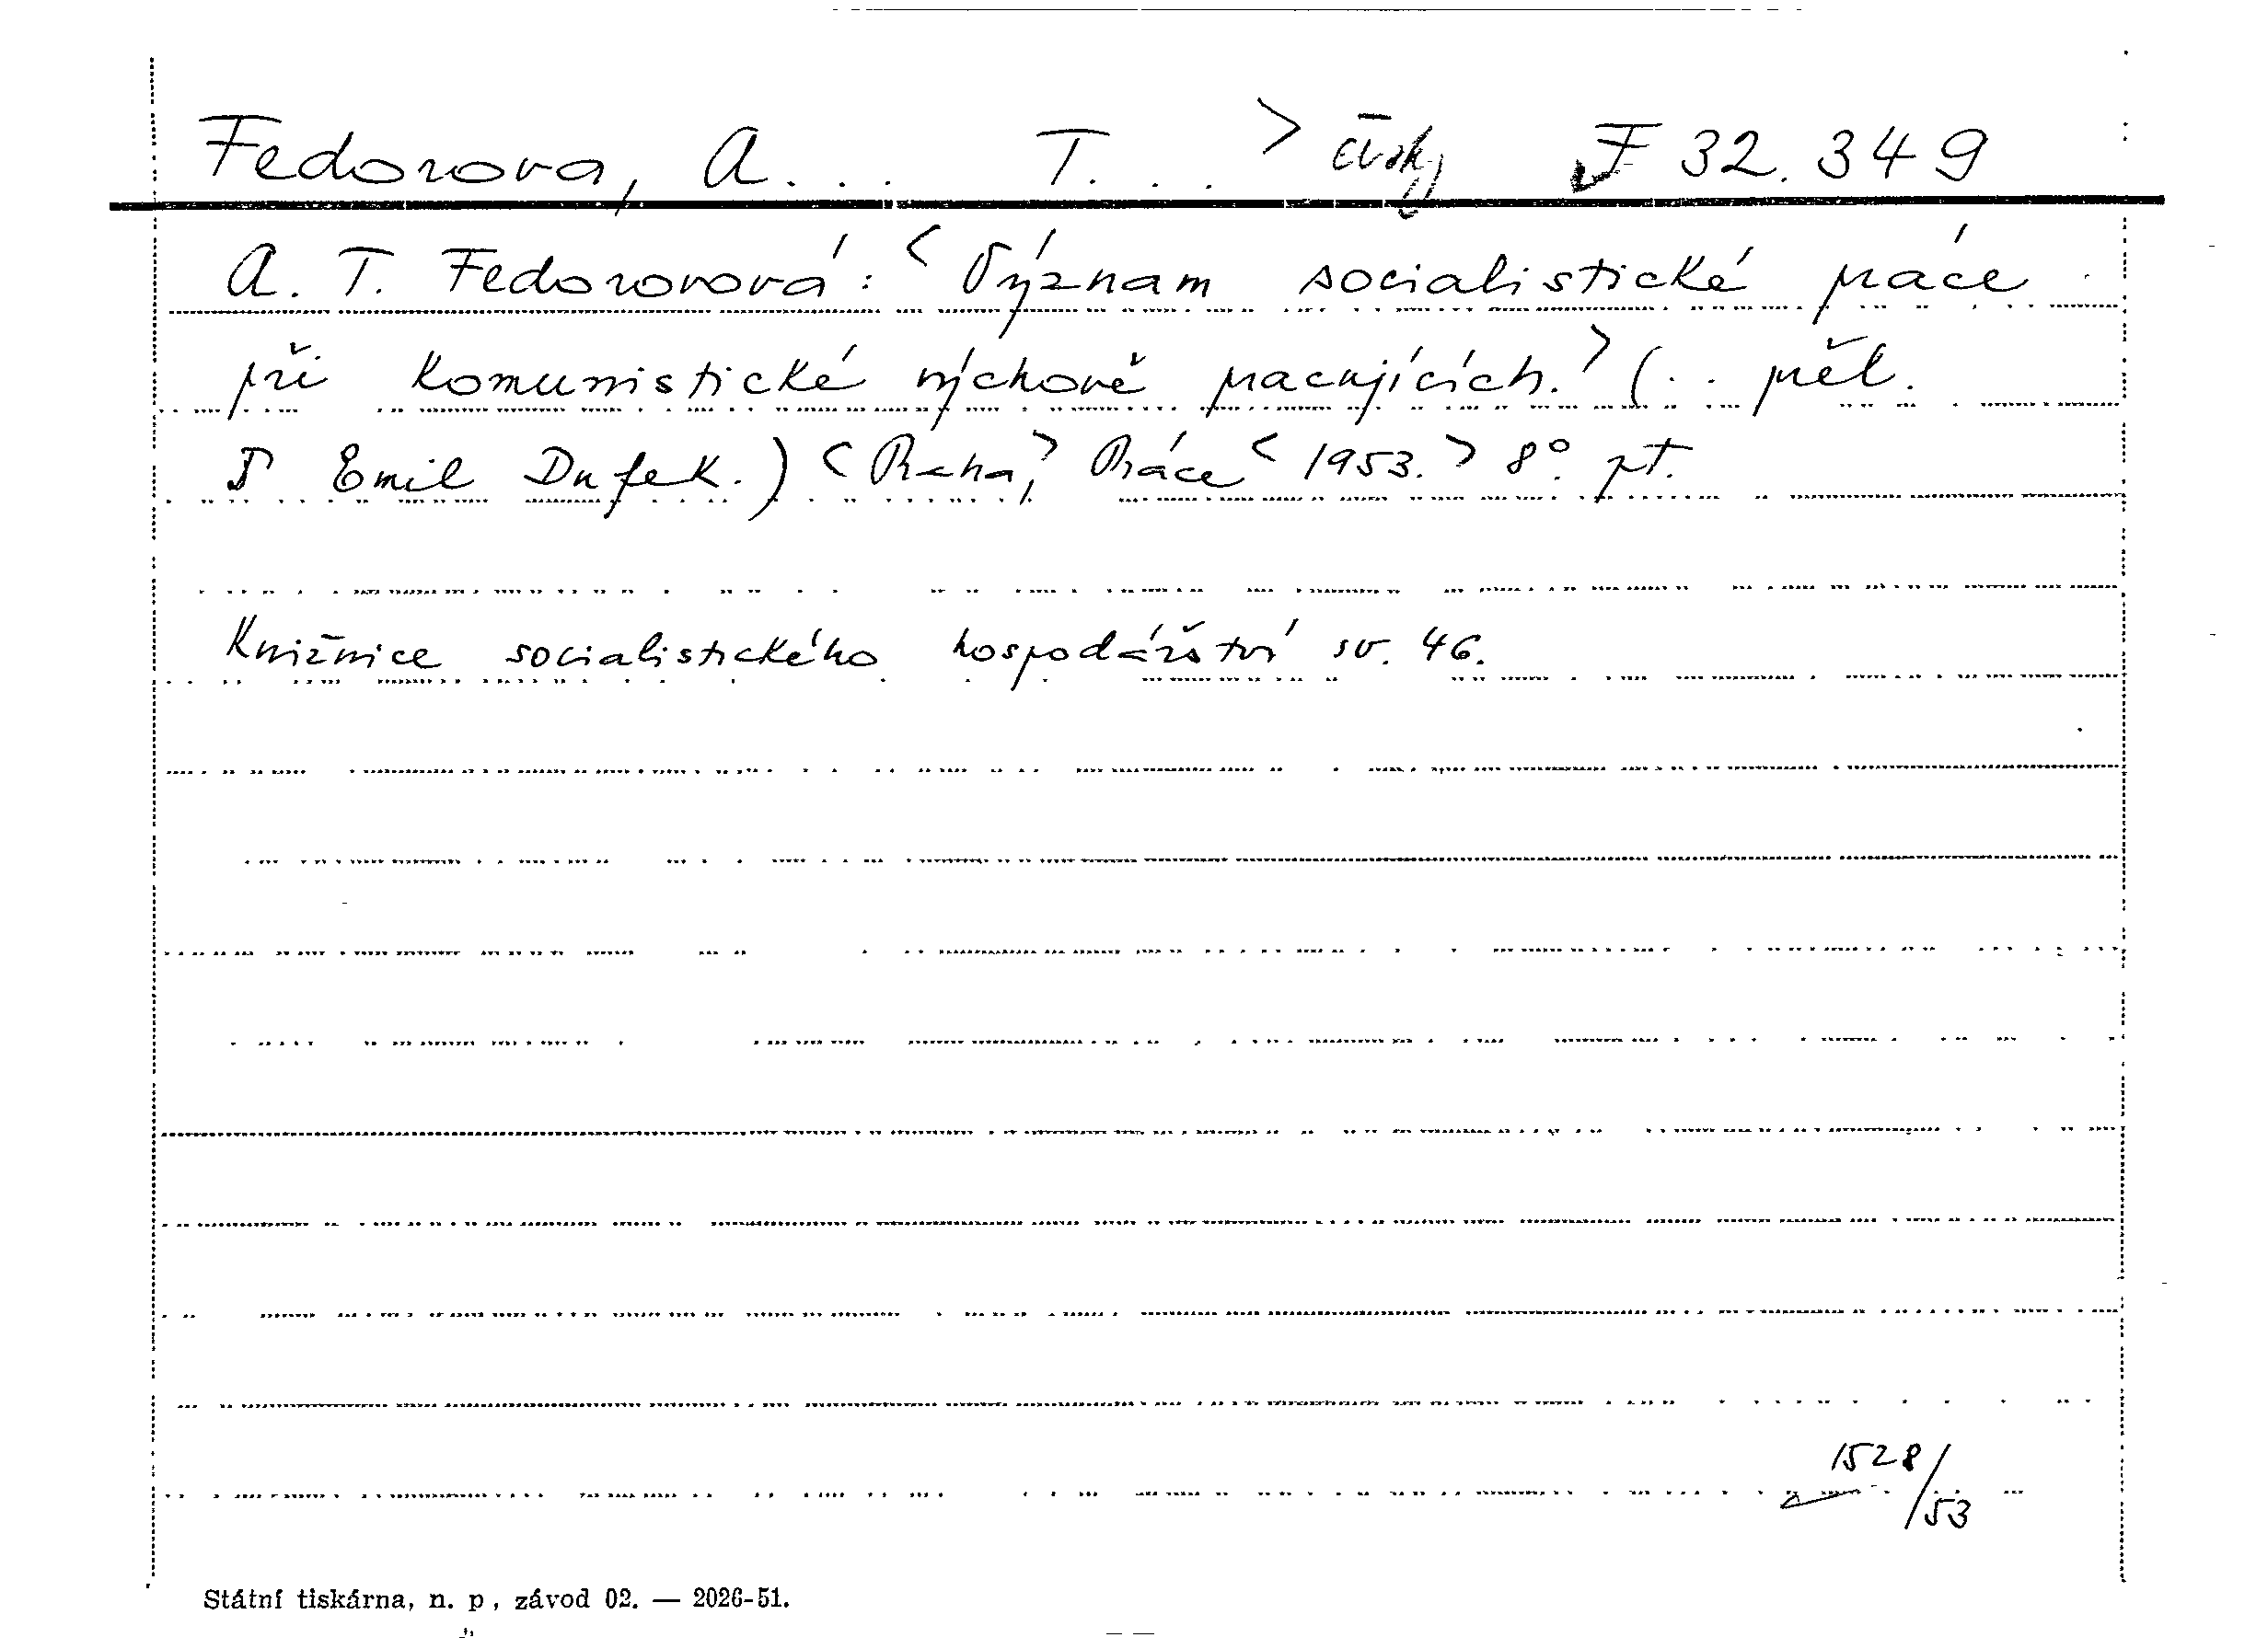 Fedorova, A... T...> F 32.349
A. T. Fedorovová: <Význam socialistické práce
při komunistické výchově pracujících.> (.. přel.
Emil Dufek.) <Praha,> Práce <1953.> 8°. pt.
Knižnice socialistického hospodářství sv. 46.
1528/53
Státní tiskárna, n. p., závod 02. — 2026-51.